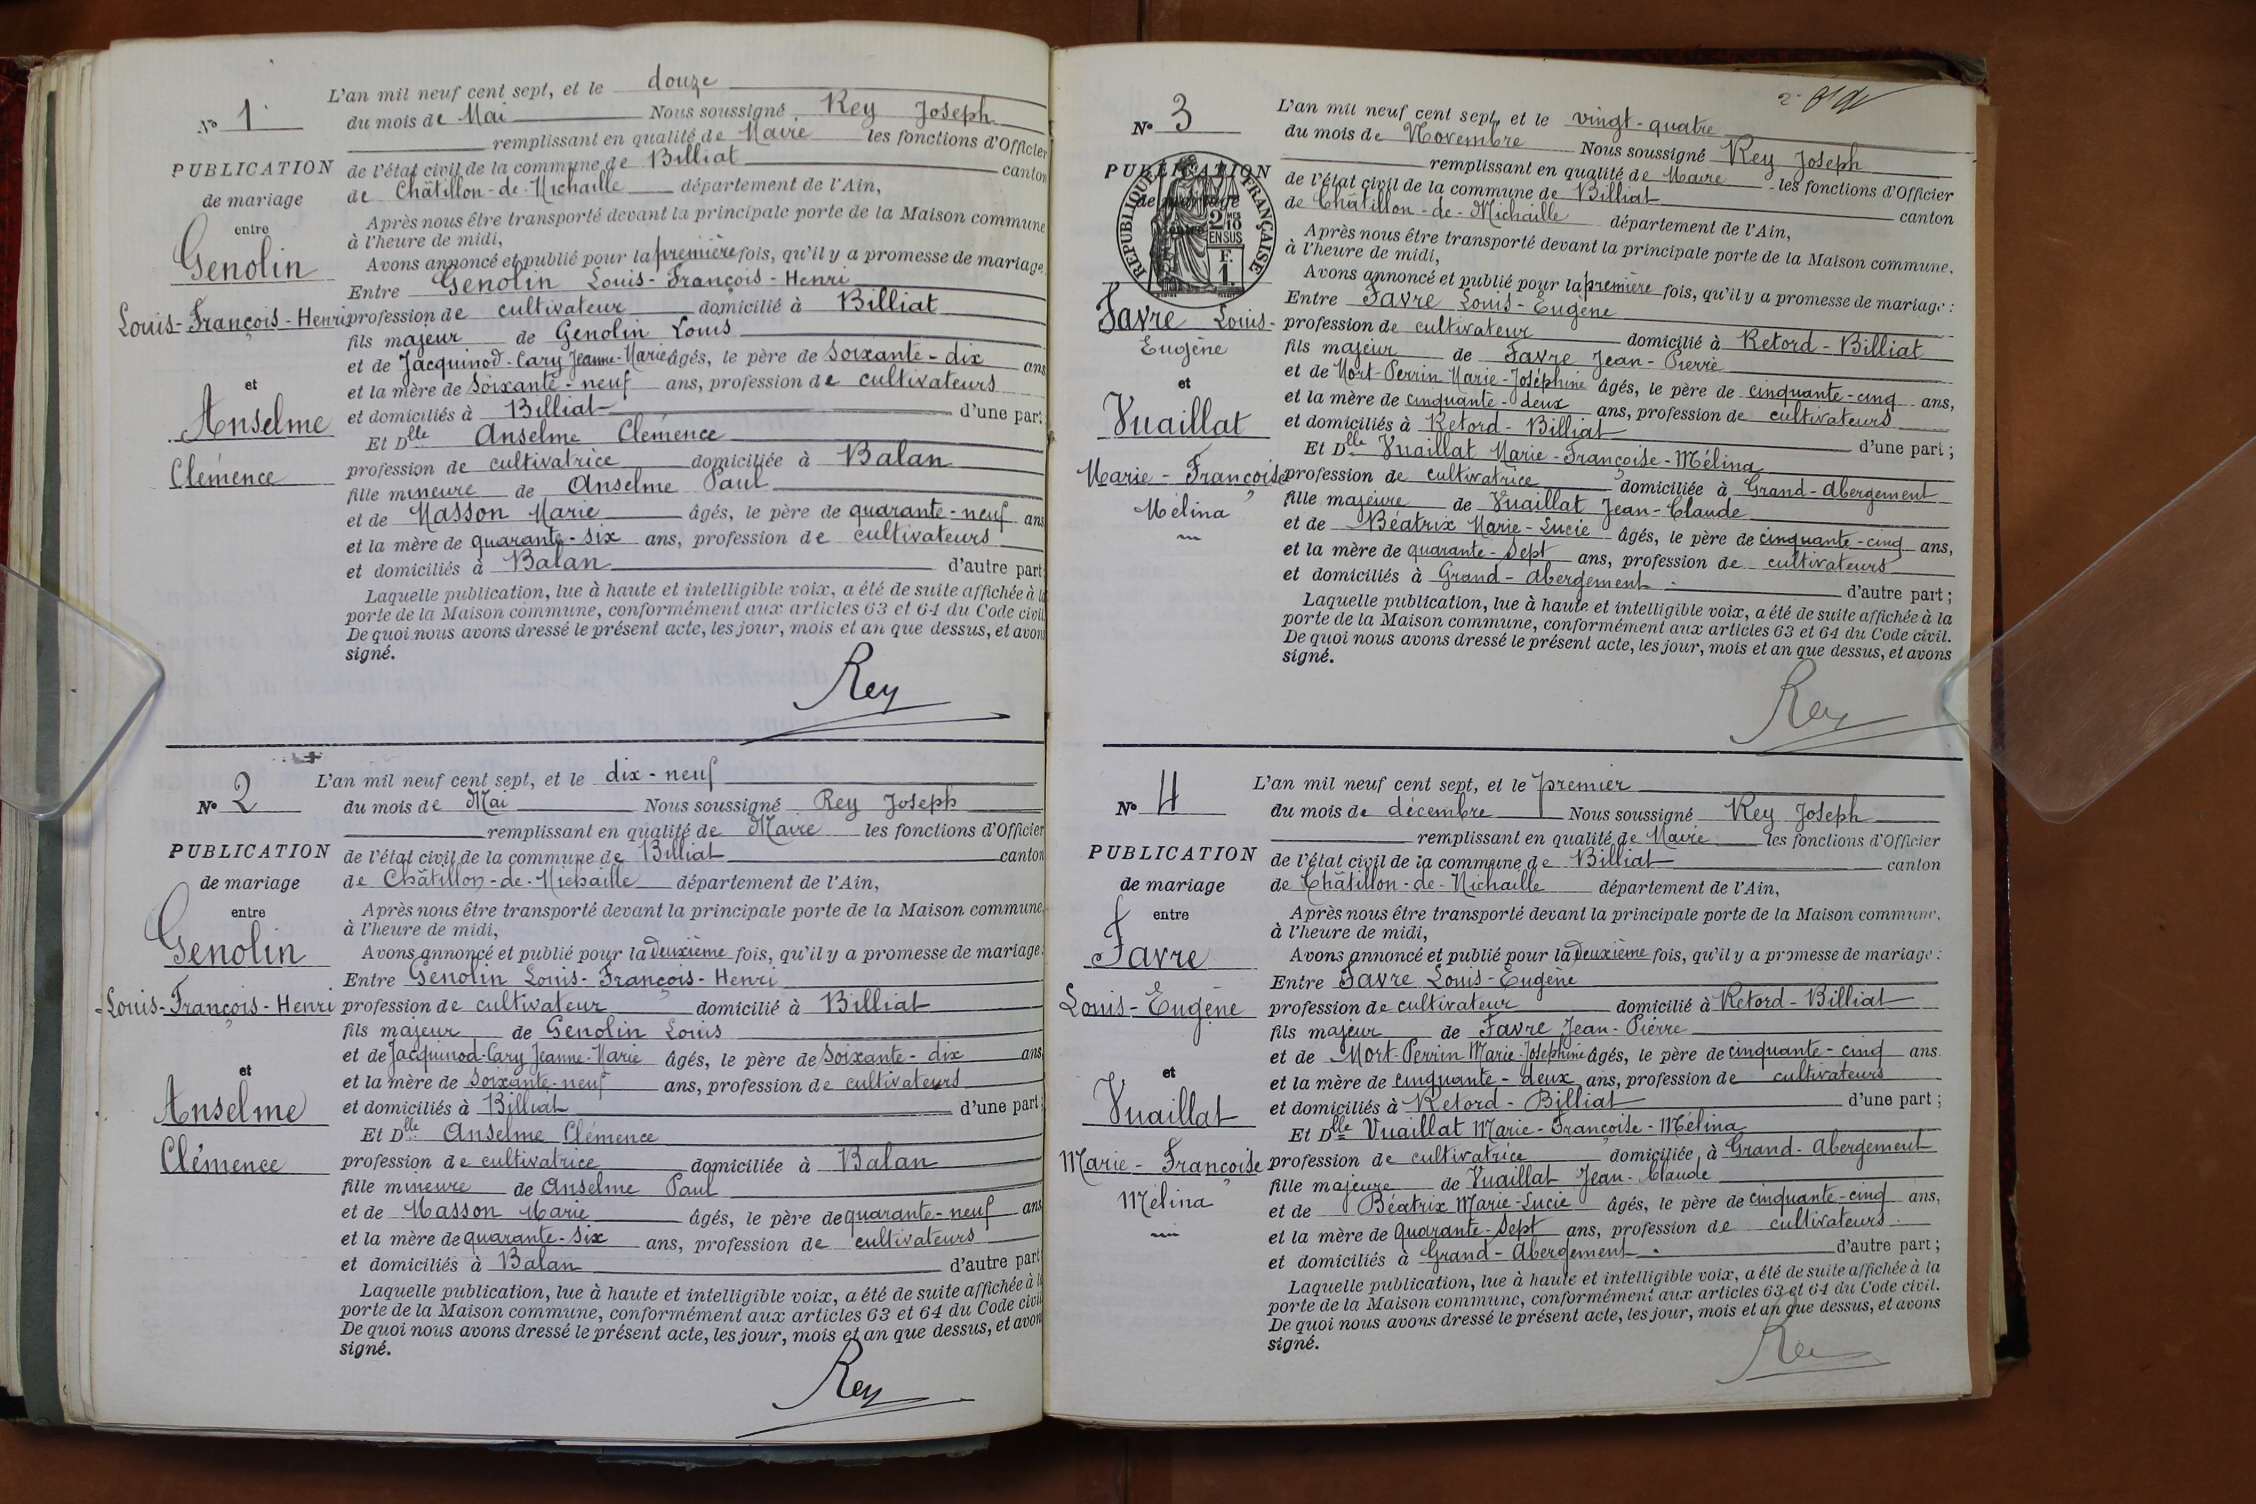 N° 1
PUBLICATION
de mariage
entre
Genolin
Louis-François-Henri
et
Anselme
Clémence
L'an mil neuf cent sept, et le douze
du mois de Mai Nous soussigné Rey Joseph
remplissant en qualité de Maire les fonctions d'Officier
de l'état civil de la commune de Billiat canton
de Châtillon-de-Michaille département de l'Ain,
Après nous être transporté devant la principale porte de la Maison commune
à l'heure de midi,
Avons annoncé et publié pour la première fois, qu'il y a promesse de mariage
Entre Genolin Louis-François-Henri
profession de cultivateur domicilié à Billiat
fils majeur de Genolin Louis
et de Jacquinod-Cary Jeanne-Marie âgés, le père de soixante-dix ans
et la mère de soixante-neuf ans, profession de cultivateurs
et domiciliés à Billiat d'une part
Et Dlle Anselme Clémence
profession de cultivatrice domiciliée à Balan
fille mineure de Anselme Paul
et de Masson Marie âgés, le père de quarante-neuf ans
et la mère de quarante-six ans, profession de cultivateurs
et domiciliés à Balan d'autre part
Laquelle publication, lue à haute et intelligible voix, a été de suite affichée à la
porte de la Maison commune, conformément aux articles 63 et 64 du Code civil
De quoi nous avons dressé le présent acte, les jour, mois et an que dessus, et avons
signé.
Rey
N° 2
PUBLICATION
de mariage
entre
Genolin
Louis-François-Henri
et
Anselme
Clémence
L'an mil neuf cent sept, et le dix-neuf
du mois de Mai Nous soussigné Rey Joseph
remplissant en qualité de Maire les fonctions d'Officier
de l'état civil de la commune de Billiat canton
de Châtillon-de-Michaille département de l'Ain,
Après nous être transporté devant la principale porte de la Maison commune
à l'heure de midi,
Avons annoncé et publié pour la deuxième fois, qu'il y a promesse de mariage:
Entre Genolin Louis-François-Henri
profession de cultivateur domicilié à Billiat
fils majeur de Genolin Louis
et de Jacquinod-Cary Jeanne-Marie âgés, le père de soixante-dix ans
et la mère de soixante-neuf ans, profession de cultivateurs
et domiciliés à Billiat d'une part;
Et Dlle Anselme Clémence
profession de cultivatrice domiciliée à Balan
fille mineure de Anselme Paul
et de Masson Marie âgés, le père de quarante-neuf ans
et la mère de quarante-six ans, profession de cultivateurs
et domiciliés à Balan d'autre part
Laquelle publication, lue à haute et intelligible voix, a été de suite affichée à la
porte de la Maison commune, conformément aux articles 63 et 64 du Code civil
De quoi nous avons dressé le présent acte, les jour, mois et an que dessus, et avons
signé.
Rey
N° 3
PUBLICATION
de mariage
entre
RÉPUBLIQUE FRANÇAISE
2 MES 10
EN SUS
F. 1
Favre Louis-
Eugène
et
Vuaillat
Marie-Françoise
Mélina
L'an mil neuf cent sept, et le vingt-quatre
du mois de Novembre Nous soussigné Rey Joseph
remplissant en qualité de Maire les fonctions d'Officier
de l'état civil de la commune de Billiat canton
de Châtillon-de-Michaille département de l'Ain,
Après nous être transporté devant la principale porte de la Maison commune.
à l'heure de midi,
Avons annoncé et publié pour la première fois, qu'il y a promesse de mariage:
Entre Favre Louis-Eugène
profession de cultivateur domicilié à Retord-Billiat
fils majeur de Favre Jean-Pierre
et de Mort-Perrin Marie-Joséphine âgés, le père de cinquante-cinq ans,
et la mère de cinquante-deux ans, profession de cultivateurs
et domiciliés à Retord-Billiat d'une part;
Et Dlle Vuaillat Marie-Françoise-Mélina
profession de cultivatrice domiciliée à Grand-Abergement
fille majeure de Vuaillat Jean-Claude
et de Béatrix Marie-Lucie âgés, le père de cinquante-cinq ans,
et la mère de quarante-sept ans, profession de cultivateurs
et domiciliés à Grand-Abergement d'autre part;
Laquelle publication, lue à haute et intelligible voix, a été de suite affichée à la
porte de la Maison commune, conformément aux articles 63 et 64 du Code civil.
De quoi nous avons dressé le présent acte, les jour, mois et an que dessus, et avons
signé.
Rey
N° 4
PUBLICATION
de mariage
entre
Favre
Louis-Eugène
et
Vuaillat
Marie-Françoise
Mélina
L'an mil neuf cent sept, et le premier
du mois de décembre Nous soussigné Rey Joseph
remplissant en qualité de Maire les fonctions d'Officier
de l'état civil de la commune de Billiat canton
de Châtillon-de-Michaille département de l'Ain,
Après nous être transporté devant la principale porte de la Maison commune,
à l'heure de midi,
Avons annoncé et publié pour la deuxième fois, qu'il y a promesse de mariage:
Entre Favre Louis-Eugène
profession de cultivateur domicilié à Retord-Billiat
fils majeur de Favre Jean-Pierre
et de Mort-Perrin Marie-Joséphine âgés, le père de cinquante-cinq ans
et la mère de cinquante-deux ans, profession de cultivateurs
et domiciliés à Retord-Billiat d'une part;
Et Dlle Vuaillat Marie-Françoise-Mélina
profession de cultivatrice domiciliée à Grand-Abergement
fille majeure de Vuaillat Jean-Claude
et de Béatrix Marie-Lucie âgés, le père de cinquante-cinq ans,
et la mère de Quarante-Sept ans, profession de cultivateurs
et domiciliés à Grand-Abergement d'autre part;
Laquelle publication, lue à haute et intelligible voix, a été de suite affichée à la
porte de la Maison commune, conformément aux articles 63 et 64 du Code civil.
De quoi nous avons dressé le présent acte, les jour, mois et an que dessus, et avons
signé.
Rey